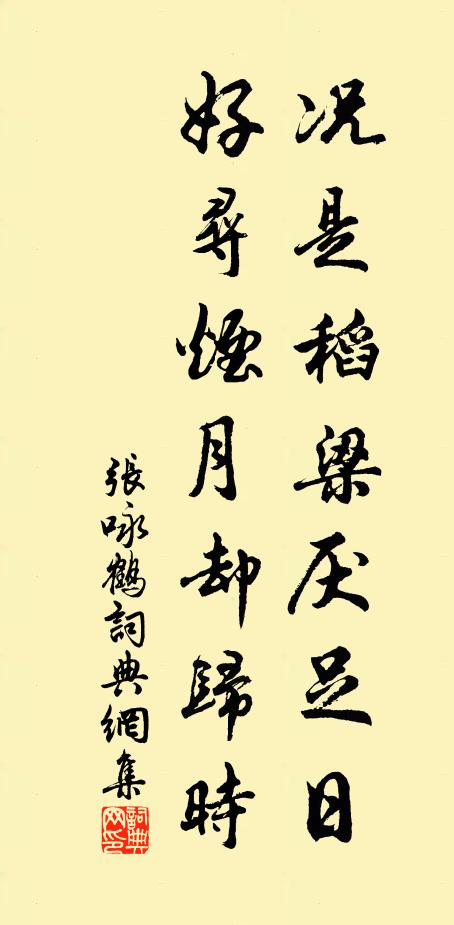 况是稻粱厌足日
好尋煙月却歸時
張咏鶴詞典網集
詞典
网印